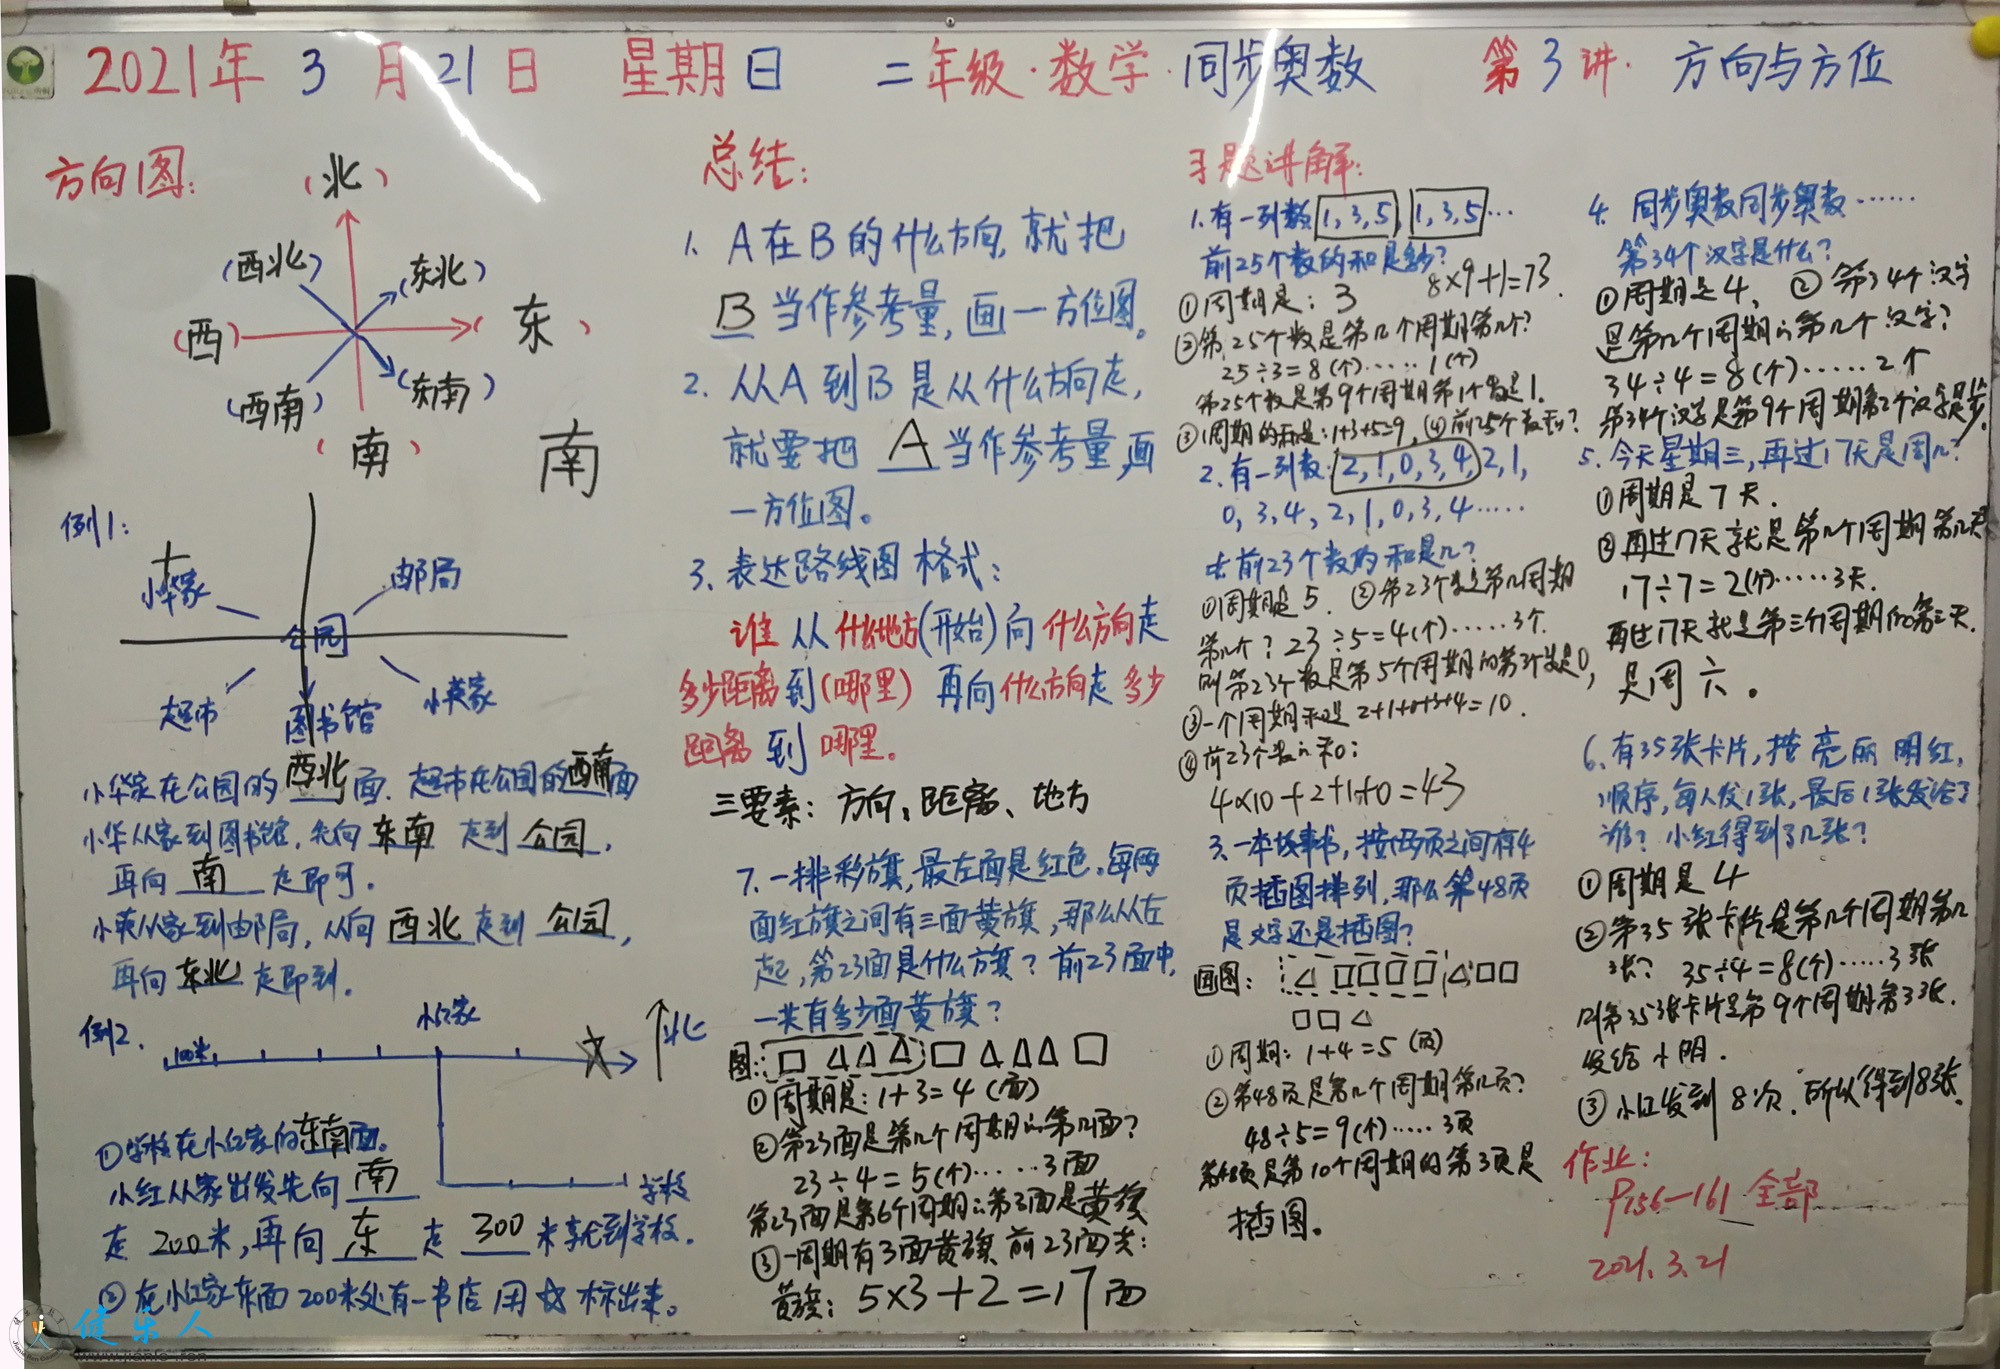 2021年 3 月 21 日 星期日 二年级·数学·同步奥数 第3讲· 方向与方位
方向图:
(北)
(西北) (东北)
(西) (东)
(西南) (东南)
(南) 南
例1:
小华家 邮局
公园
超市 图书馆 小英家
小华家在公园的西北面. 超市在公园的西南面
小华从家到图书馆, 先向 东南 走到 公园,
再向 南 走即可.
小英从家到邮局, 从向 西北 走到 公园,
再向 东北 走即到.
例2. 小红家 北
100米
学校
①学校在小红家的东南面.
小红从家出发先向 南
走 200米, 再向 东 走 300 米就到学校.
②在小红家东面 200米处有一书店 用☆标出来。
总结:
1. A在B的什么方向, 就把
B 当作参考量, 画一方位图。
2. 从A到B是从什么方向走,
就要把 A 当作参考量,画
一方位图。
3. 表达路线图格式:
谁从什么地方(开始)向什么方向走
多少距离到(哪里) 再向什么方向走多少
距离到哪里。
三要素: 方向、距离、地方
7. 一排彩旗, 最左面是红色. 每两
面红旗之间有三面黄旗, 那么从左
起, 第23面是什么旗? 前23面中,
一共有多少面黄旗?
图: □△△△□△△△□
①周期是: 1+3=4(面)
②第23面是第几个周期的第几面?
23÷4=5(个)……3面
第23面是第6个周期的第3面是黄旗
③一周期有3面黄旗 前23面共:
黄旗: 5×3+2=17面
习题讲解:
1. 有一列数 1,3,5, 1,3,5…
前25个数的和是多少?
8×9+1=73.
①周期是: 3
②第25个数是第几个周期第几个?
25÷3=8(个)……1(个)
第25个数是第9个周期第1个数是1.
③1周期的和是:1+3+5=9. ④前25个数和?
2. 有一列数: 2,1,0,3,4, 2,1,
0,3,4,2,1,0,3,4……
去前23个数的和是几?
①周期是5. ②第23个数是第几周期
第几个? 23÷5=4(个)……3个.
则第23个数是第5个周期的第3个数是0,
③一个周期和是 2+1+0+3+4=10.
④前23个数的和:
4×10+2+1+0=43
3. 一本故事书, 按两页之间有4
页插图排列, 那么第48页
是文字还是插图?
画图: △□□□□△□□
□□△
①周期: 1+4=5(页)
②第48页是第几个周期第几页?
48÷5=9(个)……3页
第48页是第10个周期的第3页是
插图。
4. 同步奥数同步奥数……
第34个汉字是什么?
①周期是4, ②第34个汉字
是第几个周期的第几个汉字?
34÷4=8(个)……2个
第34个汉字是第9个周期第2个汉字是步.
5. 今天星期三, 再过17天是周几?
①周期是7天.
②再过17天就是第几个周期第几天
17÷7=2(个)……3天.
再过17天就是第三个周期的第三天.
是周六。
6. 有35张卡片, 按亮丽明红,
顺序, 每人发1张, 最后1张发给了
谁? 小红得到了几张?
①周期是4
②第35张卡片是第几个周期第几
张? 35÷4=8(个)……3张
则第35张卡片是第9个周期第3张.
发给小明.
③小红发到8次. 所以得到8张.
作业:
P156—161 全部
2021.3.21
健乐人